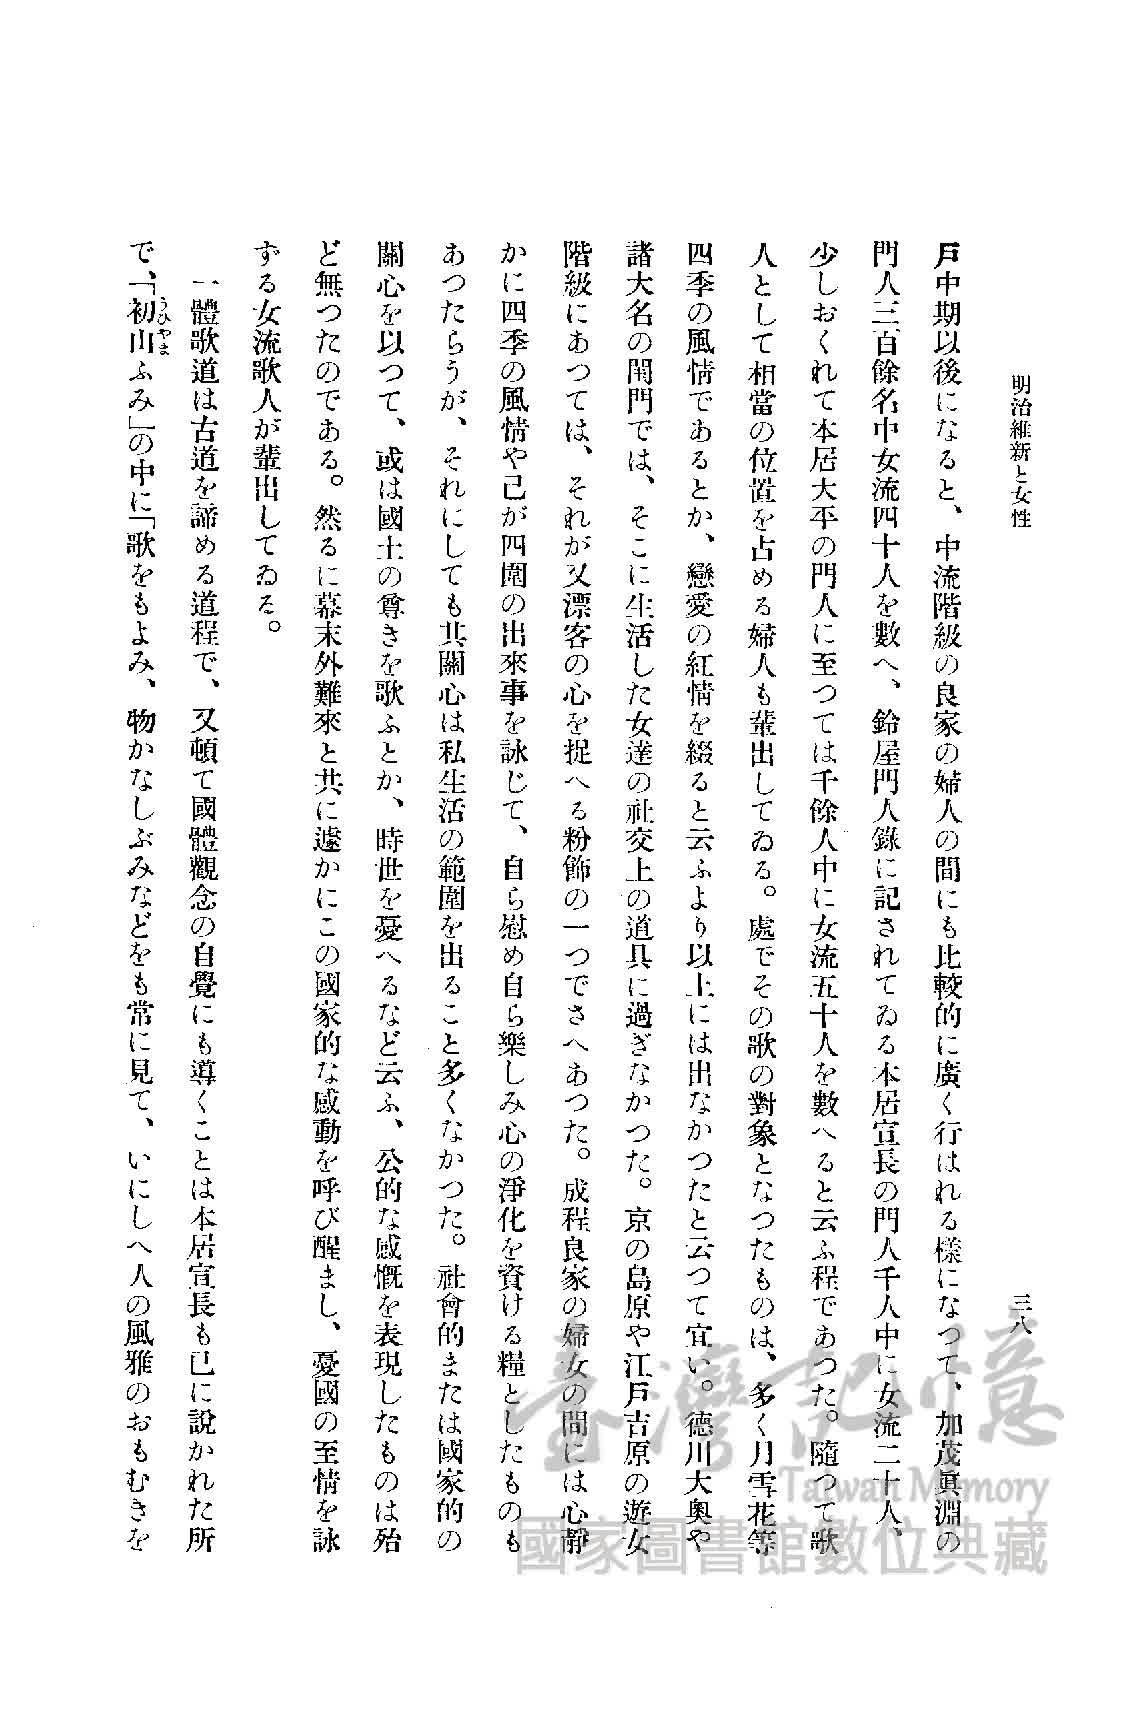 明治維新と女性
三八
戸中期以後になると、中流階級の良家の婦人の間にも比較的に廣く行はれる樣になつて、加茂眞淵の
門人三百餘名中女流四十人を數へ、鈴屋門人錄に記されてゐる本居宣長の門人千人中に女流二十人、
少しおくれて本居大平の門人に至つては千餘人中に女流五十人を數へると云ふ程であつた。隨つて歌
人として相當の位置を占める婦人も輩出してゐる。處でその歌の對象となつたものは、多く月雪花等
四季の風情であるとか、戀愛の紅情を綴ると云ふより以上には出なかつたと云つて宜い。德川大奧や
諸大名の閨門では、そこに生活した女達の社交上の道具に過ぎなかつた。京の島原や江戸吉原の遊女
階級にあつては、それが又漂客の心を捉へる粉飾の一つでさへあつた。成程良家の婦女の間には心靜
かに四季の風情や己が四圍の出來事を詠じて、自ら慰め自ら樂しみ心の淨化を資ける糧としたものも
あつたらうが、それにしても其關心は私生活の範圍を出ること多くなかつた。社會的または國家的の
關心を以つて、或は國土の尊きを歌ふとか、時世を憂へるなど云ふ、公的な感慨を表現したものは殆
ど無つたのである。然るに幕末外難來と共に遽かにこの國家的な感動を呼び醒まし、憂國の至情を詠
ずる女流歌人が輩出してゐる。
一體歌道は古道を諦める道程で、又頓て國體觀念の自覺にも導くことは本居宣長も已に說かれた所
で、「初山ふみ」の中に「歌をもよみ、物かなしぶみなどをも常に見て、いにしへ人の風雅のおもむきを
うひやま
臺灣記憶
Taiwan Memory
國家圖書館數位典藏